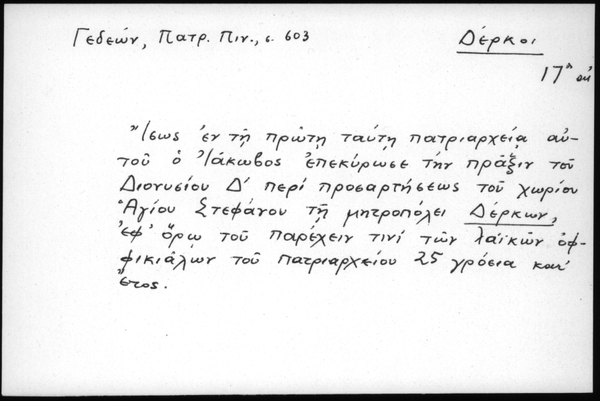 Γεδεών, Πατρ. Πιν., σ. 603
Δέρκοι
17ος αἰ
"Ἴσως ἐν τῇ πρώτῃ ταύτῃ πατριαρχείᾳ αὐ-
τοῦ ὁ Ἰάκωβος ἐπεκύρωσε τὴν πρᾶξιν τοῦ
Διονυσίου Δ' περί προσαρτήσεως τοῦ χωρίου
Ἁγίου Στεφάνου τῇ μητροπόλει Δέρκων,
ἐφ' ὅρῳ τοῦ παρέχειν τινί τῶν λαϊκῶν ὀφ-
φικιάλων τοῦ πατριαρχείου 25 γρόσια κατ'
ἔτος.